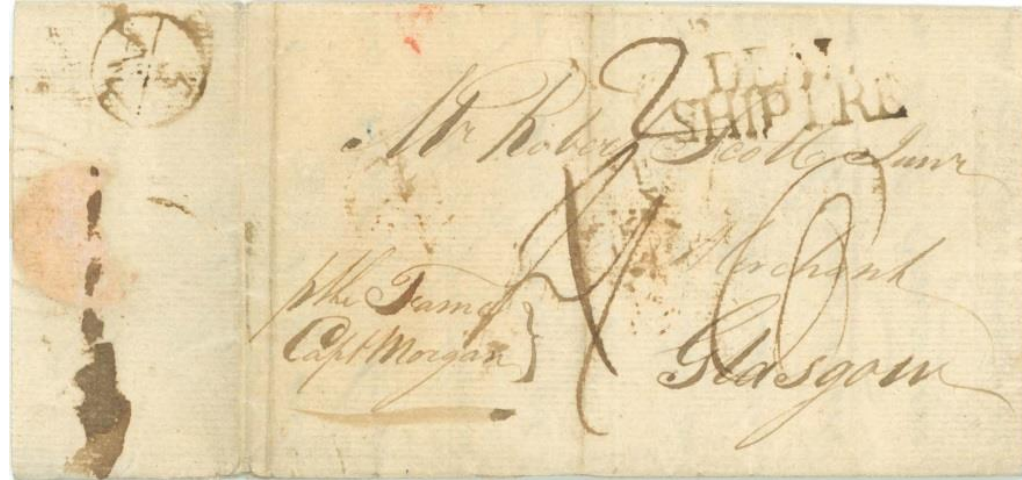 DEAL
SHIP LRE
Mr Robert Scott Junr
Merchant
Glasgow
p the Fame
Capt Morgan